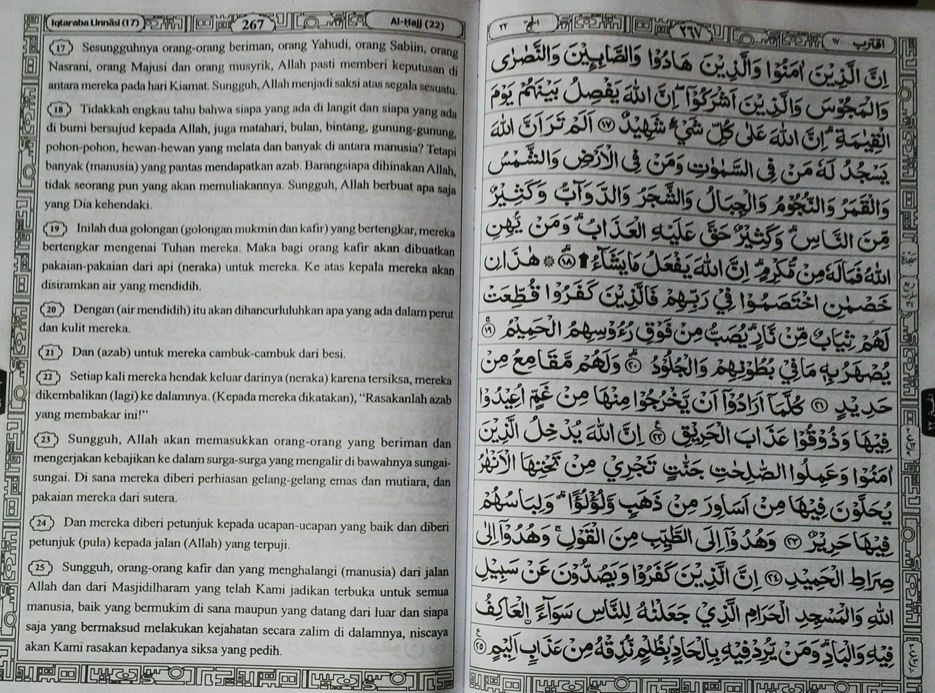 Iqtaraba Linnâsi (17)
267
Al-Hajj (22)
17 Sesungguhnya orang-orang beriman, orang Yahudi, orang Sabiin, orang
Nasrani, orang Majusi dan orang musyrik, Allah pasti memberi keputusan di
antara mereka pada hari Kiamat. Sungguh, Allah menjadi saksi atas segala sesuatu.
18 Tidakkah engkau tahu bahwa siapa yang ada di langit dan siapa yang ada
di bumi bersujud kepada Allah, juga matahari, bulan, bintang, gunung-gunung,
pohon-pohon, hewan-hewan yang melata dan banyak di antara manusia? Tetapi
banyak (manusia) yang pantas mendapatkan azab. Barangsiapa dihinakan Allah,
tidak seorang pun yang akan memuliakannya. Sungguh, Allah berbuat apa saja
yang Dia kehendaki.
19 Inilah dua golongan (golongan mukmin dan kafir) yang bertengkar, mereka
bertengkar mengenai Tuhan mereka. Maka bagi orang kafir akan dibuatkan
pakaian-pakaian dari api (neraka) untuk mereka. Ke atas kepala mereka akan
disiramkan air yang mendidih.
20 Dengan (air mendidih) itu akan dihancurluluhkan apa yang ada dalam perut
dan kulit mereka.
21 Dan (azab) untuk mereka cambuk-cambuk dari besi.
22 Setiap kali mereka hendak keluar darinya (neraka) karena tersiksa, mereka
dikembalikan (lagi) ke dalamnya. (Kepada mereka dikatakan), “Rasakanlah azab
yang membakar ini!”
23 Sungguh, Allah akan memasukkan orang-orang yang beriman dan
mengerjakan kebajikan ke dalam surga-surga yang mengalir di bawahnya sungai-
sungai. Di sana mereka diberi perhiasan gelang-gelang emas dan mutiara, dan
pakaian mereka dari sutera.
24 Dan mereka diberi petunjuk kepada ucapan-ucapan yang baik dan diberi
petunjuk (pula) kepada jalan (Allah) yang terpuji.
25 Sungguh, orang-orang kafir dan yang menghalangi (manusia) dari jalan
Allah dan dari Masjidilharam yang telah Kami jadikan terbuka untuk semua
manusia, baik yang bermukim di sana maupun yang datang dari luar dan siapa
saja yang bermaksud melakukan kejahatan secara zalim di dalamnya, niscaya
akan Kami rasakan kepadanya siksa yang pedih.
اقترب ١٧
٢٦٧
الحج ٢٢
اِنَّ الَّذِيْنَ اٰمَنُوْا وَالَّذِيْنَ هَادُوْا وَالصَّابِـِٕيْنَ وَالنَّصٰرٰى
وَالْمَجُوْسَ وَالَّذِيْنَ اَشْرَكُوْٓا ۖاِنَّ اللّٰهَ يَفْصِلُ بَيْنَهُمْ يَوْمَ
الْقِيٰمَةِۗ اِنَّ اللّٰهَ عَلٰى كُلِّ شَيْءٍ شَهِيْدٌ ۝١٧ اَلَمْ تَرَ اَنَّ اللّٰهَ
يَسْجُدُ لَهٗ مَنْ فِى السَّمٰوٰتِ وَمَنْ فِى الْاَرْضِ وَالشَّمْسُ
وَالْقَمَرُ وَالنُّجُوْمُ وَالْجِبَالُ وَالشَّجَرُ وَالدَّوَاۤبُّ وَكَثِيْرٌ
مِّنَ النَّاسِۗ وَكَثِيْرٌ حَقَّ عَلَيْهِ الْعَذَابُۗ وَمَنْ يُّهِنِ
اللّٰهُ فَمَا لَهٗ مِنْ مُّكْرِمٍۗ اِنَّ اللّٰهَ يَفْعَلُ مَا يَشَاۤءُ ۩ ۝١٨ ۞ هٰذَانِ
خَصْمٰنِ اخْتَصَمُوْا فِيْ رَبِّهِمْ فَالَّذِيْنَ كَفَرُوْا قُطِّعَتْ
لَهُمْ ثِيَابٌ مِّنْ نَّارٍۗ يُصَبُّ مِنْ فَوْقِ رُءُوْسِهِمُ الْحَمِيْمُ ۝١٩
يُصْهَرُ بِهٖ مَا فِيْ بُطُوْنِهِمْ وَالْجُلُوْدُ ۝٢٠ وَلَهُمْ مَّقَامِعُ مِنْ
حَدِيْدٍ ۝٢١ كُلَّمَآ اَرَادُوْٓا اَنْ يَّخْرُجُوْا مِنْهَا مِنْ غَمٍّ اُعِيْدُوْا
فِيْهَا وَذُوْقُوْا عَذَابَ الْحَرِيْقِ ۝٢٢ اِنَّ اللّٰهَ يُدْخِلُ الَّذِيْنَ
اٰمَنُوْا وَعَمِلُوا الصّٰلِحٰتِ جَنّٰتٍ تَجْرِيْ مِنْ تَحْتِهَا الْاَنْهٰرُ
يُحَلَّوْنَ فِيْهَا مِنْ اَسَاوِرَ مِنْ ذَهَبٍ وَّلُؤْلُؤًاۗ وَلِبَاسُهُمْ
فِيْهَا حَرِيْرٌ ۝٢٣ وَهُدُوْٓا اِلَى الطَّيِّبِ مِنَ الْقَوْلِۚ وَهُدُوْٓا اِلٰى
صِرَاطِ الْحَمِيْدِ ۝٢٤ اِنَّ الَّذِيْنَ كَفَرُوْا وَيَصُدُّوْنَ عَنْ سَبِيْلِ
اللّٰهِ وَالْمَسْجِدِ الْحَرَامِ الَّذِيْ جَعَلْنٰهُ لِلنَّاسِ سَوَاۤءً ۨالْعَاكِفُ
فِيْهِ وَالْبَادِۗ وَمَنْ يُّرِدْ فِيْهِ بِاِلْحَادٍۢ بِظُلْمٍ نُّذِقْهُ مِنْ عَذَابٍ اَلِيْمٍ ۝٢٥